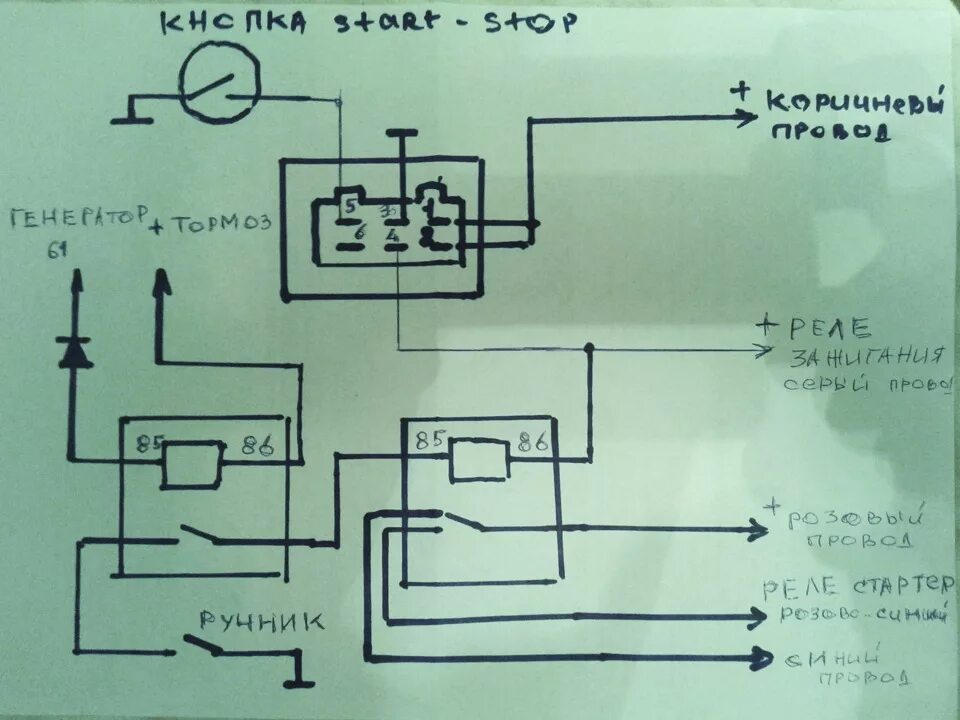 КНОПКА START - STOP
+ КОРИЧНЕВЫЙ
ПРОВОД
ГЕНЕРАТОР
61
+ ТОРМОЗ
5 3 1
6 4 2
+ РЕЛЕ
ЗАЖИГАНИЯ
СЕРЫЙ ПРОВОД
85 86
85 86
+ РОЗОВЫЙ
ПРОВОД
РЕЛЕ СТАРТЕР
РОЗОВО-СИНИЙ
РУЧНИК
СИНИЙ
ПРОВОД